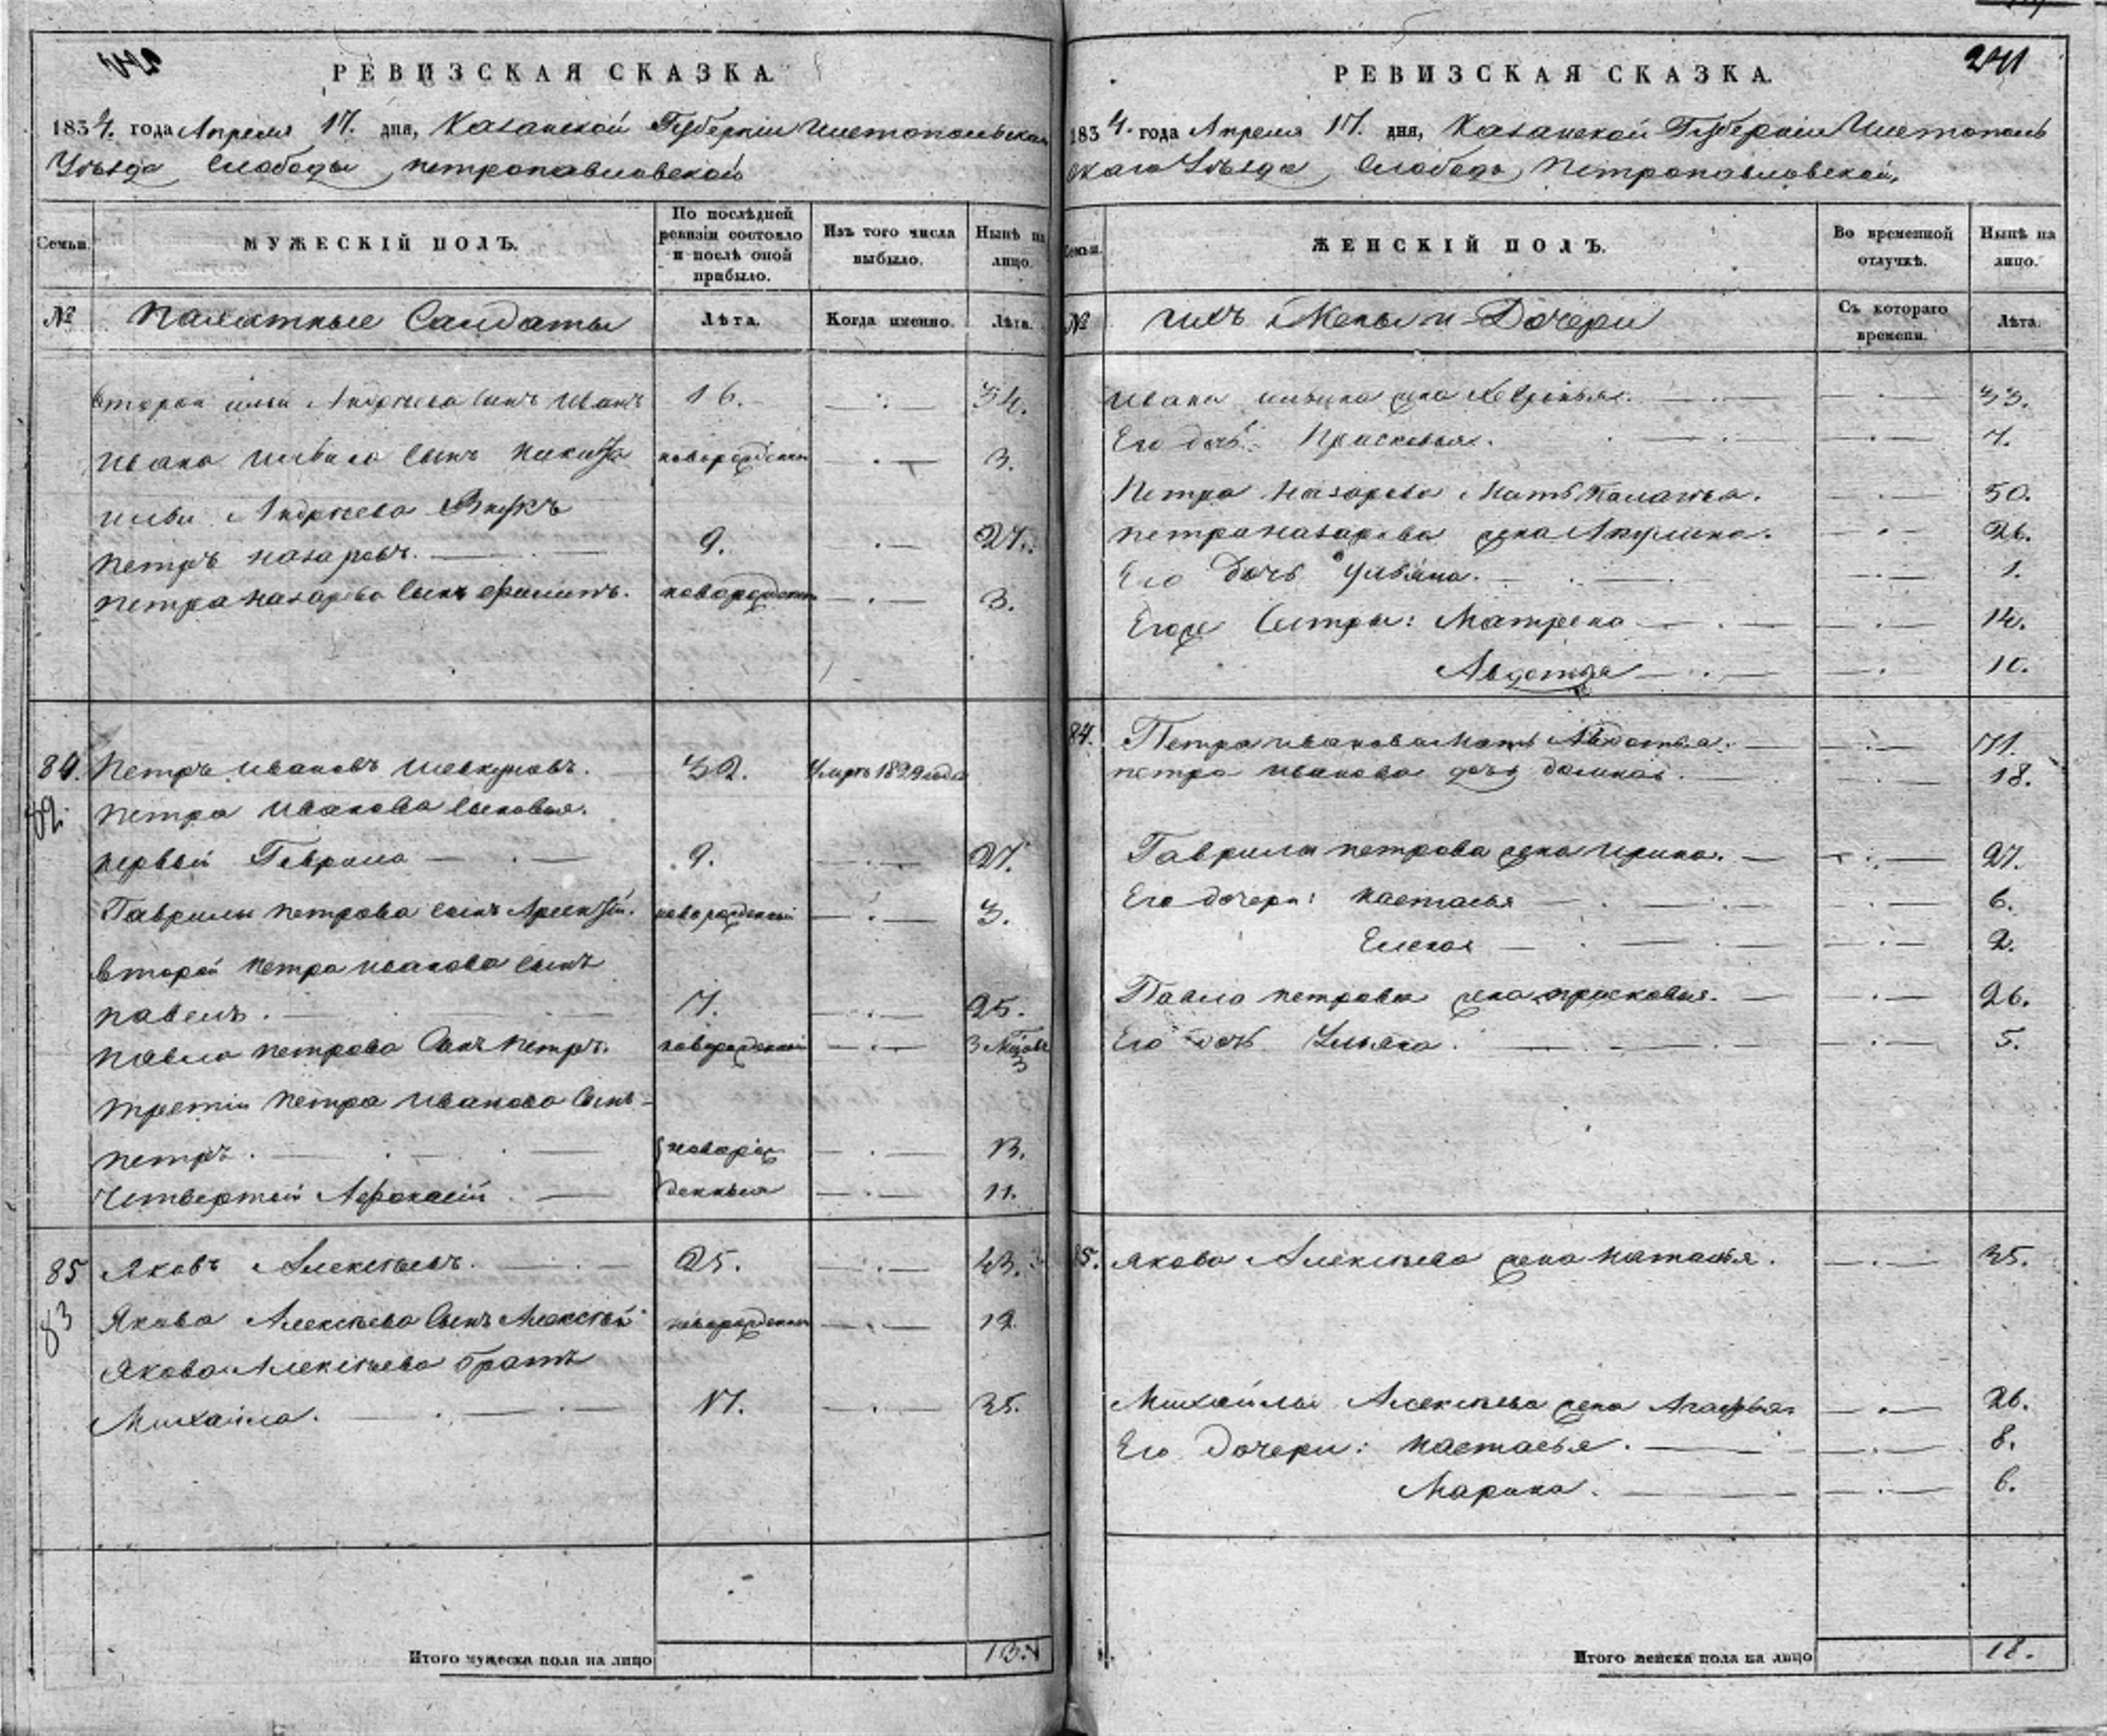 РЕВИЗСКАЯ СКАЗКА.
1834. года Апреля 17. дня, Казанской Губерніи Чистопольскаго
Уѣзда Слободы петропавловской
Семьи.
МУЖЕСКІЙ ПОЛЪ.
По послѣдней ревизіи состояло и послѣ оной прибыло.
Изъ того числа выбыло.
Нынѣ на лицо.
№
Пахатные Салдаты
Лѣта.
Когда именно.
Лѣта.
второй ильи Андрѣева сынъ Иванъ 16. 34.
Ивана ильина сынъ Никита новорожденъ 3.
ильи Андрѣева Внукъ
петръ назаровъ. 9. 27.
петра назарова сынъ филипъ. новорожденъ 3.
84. Петръ ивановъ шевкуновъ. 32. Умръ 1829 года
82.
петра иванова сыновья.
первый Гаврило 9. 27.
Гаврилы петрова сынъ Арсентій. новорожденный 3.
второй петра иванова сынъ
павелъ. 7. 25.
павла петрова сынъ петръ. новорожденный 3 Мѣсовъ
третій петра иванова сынъ
петръ. новорож 13.
Четвертый Афонасій денныя 11.
85 Яковъ Алексѣевъ. 25. 43.
83
Якова Алексѣева сынъ Алексѣй новорожденъ 12
Якова Алексѣева братъ
Михайло. 17. 35.
Итого мужеска пола на лицо 13.
241
РЕВИЗСКАЯ СКАЗКА.
1834. года Апреля 17. дня, Казанской Губерніи Чистополь
скаго Уѣзда Слободы Петропавловской,
Семьи.
ЖЕНСКІЙ ПОЛЪ.
Во временной отлучкѣ.
Нынѣ на лицо.
№
ихъ Жены и Дочери
Съ котораго времени.
Лѣта.
Ивана ильина жена Хевронья. 33.
Его дочь Прасковья. 7.
Петра назарова Мать Паладья. 50.
петра назарова жена Акулина. 26.
Его Дочь Ульяна. 1.
Егоже Сестры: Матрена 14.
Авдотья 10.
84. Петра иванова Мать Авдотья. 71.
петра иванова дочь домна. 18.
Гаврилы петрова жена Ирина. 27.
Его дочери: настасья 6.
Елена 2.
Павла петрова жена прасковья. 26.
Его дочь Ульяна. 5.
85. Якова Алексѣева жена наталья. 35.
Михайлы Алексѣева жена Агафья 26.
Его Дочери: настасья. 8.
Марина. 6.
Итого женска пола на лицо 18.